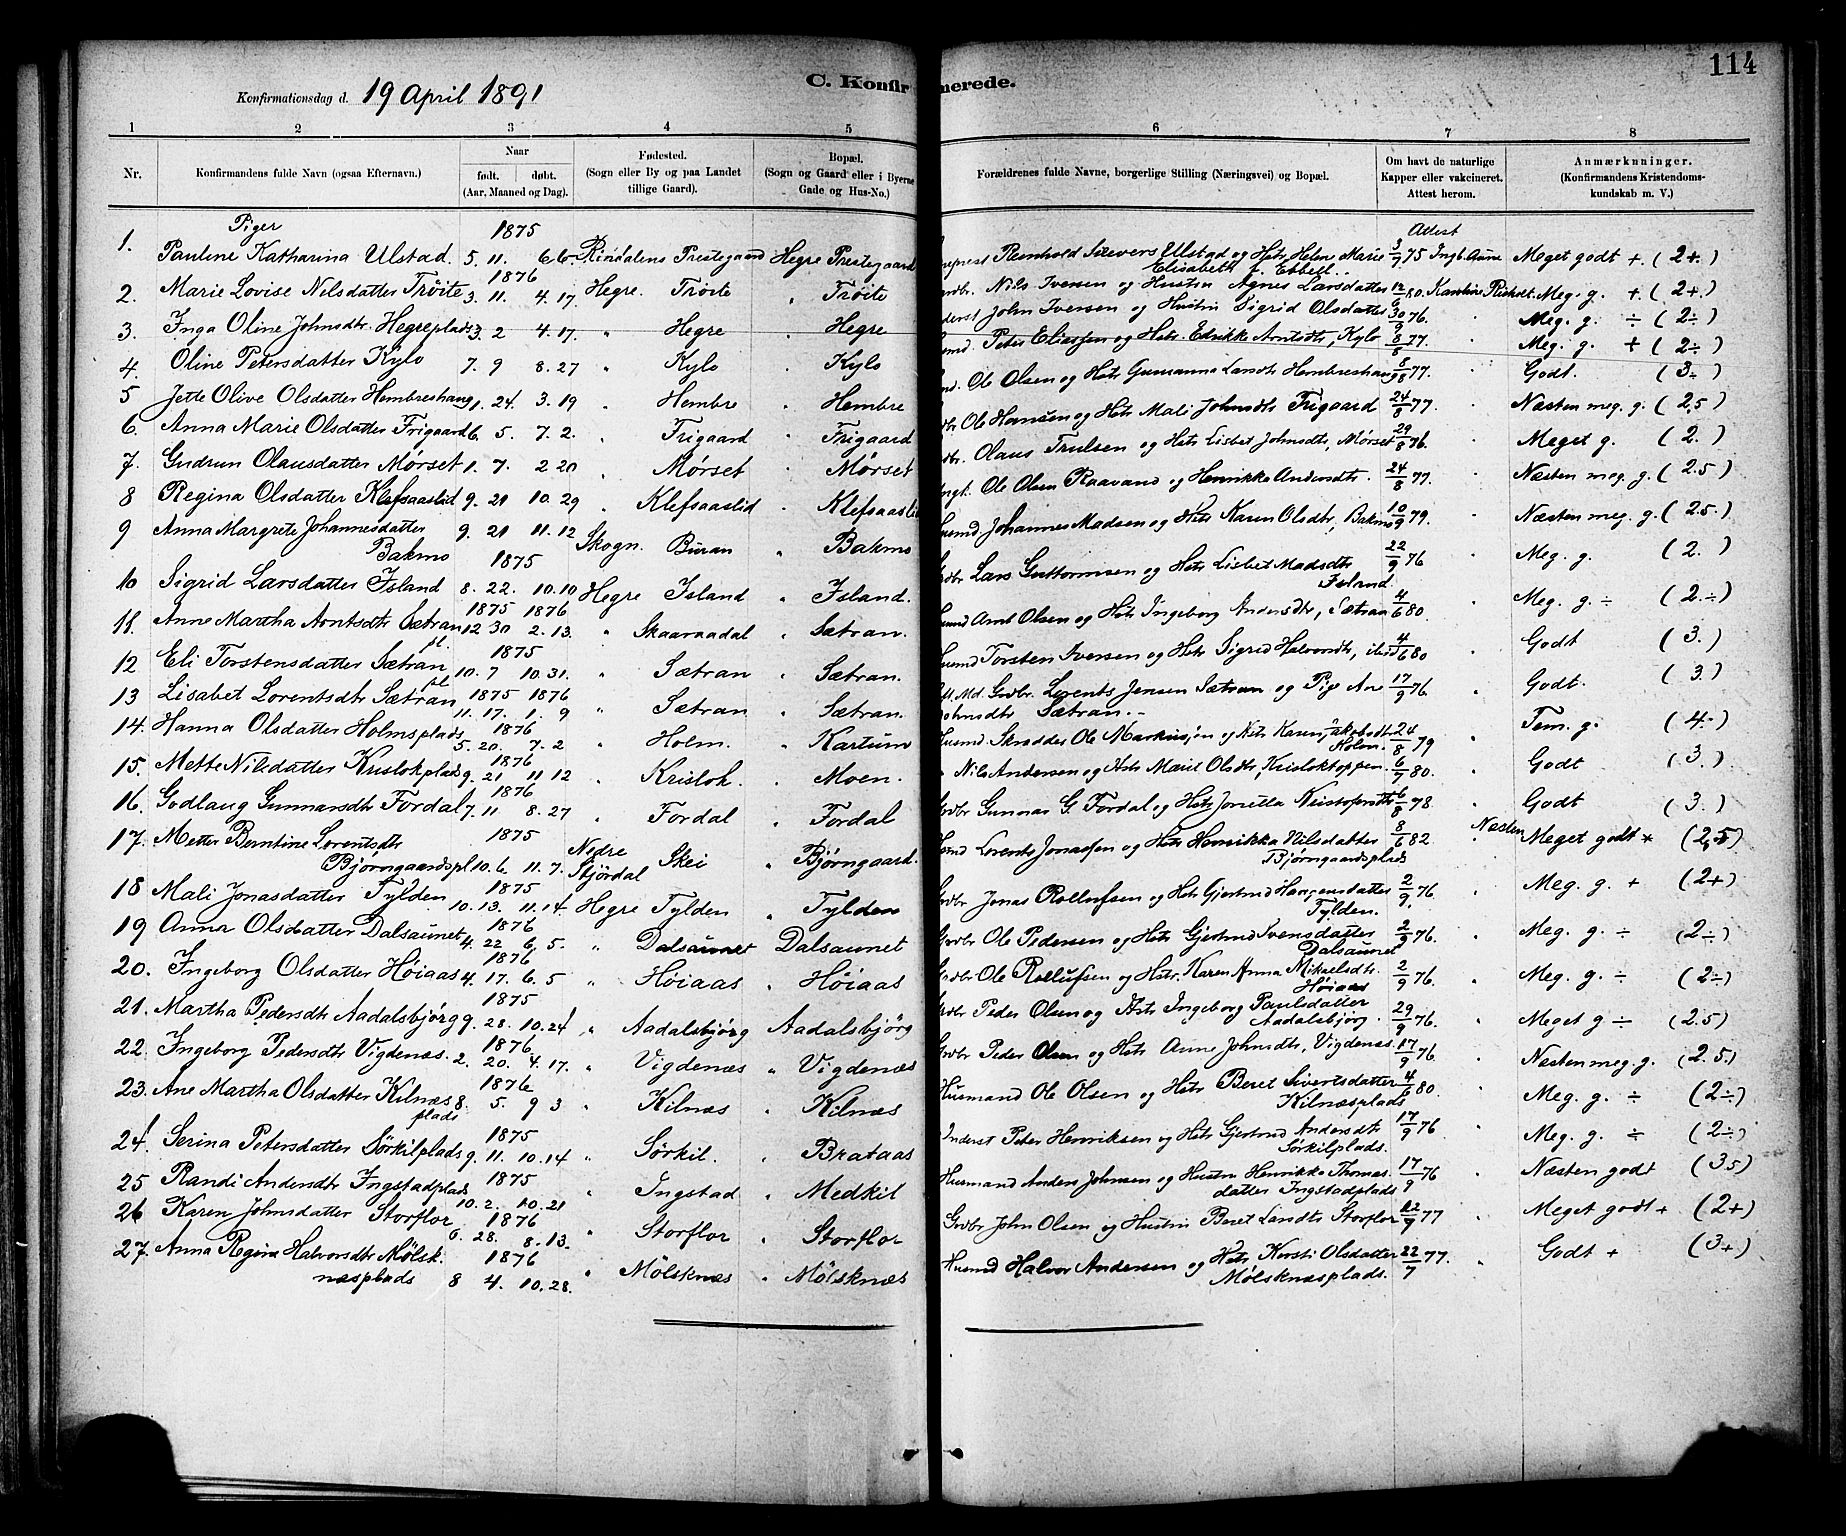 114
Konfirmationsdag d. 19 April 1891
C. Konfirmerede.
1 2 3 4 5 6 7 8
Nr. Konfirmandens fulde Navn (ogsaa Efternavn). Naar født. døbt. (Aar, Maaned og Dag). Fødested. (Sogn eller By og paa Landet tillige Gaard). Bopæl. (Sogn og Gaard eller i Byerne Gade og Hus-No.) Forældrenes fulde Navne, borgerlige Stilling (Næringsvei) og Bopæl. Om havt de naturlige Kapper eller vakcineret. Attest herom. Anmærkninger. (Konfirmandens Kristendomskundskab m. V.)
Piger 1875 Attest
1. Pauline Katharina Ulstad. 5. 11. 6.6. Rindalens Prestegaard Hegre Prestegaard Reinhold Sievers Ullstad og Hstr. Helen Marie Elisabeth f. Ebbell. 3/9 75 Ingb. Aune Meget godt +. (2+.)
1876
2. Marie Lovise Nilsdatter Trøite 3. 11. 4. 17. Hegre. Trøite " Trøite Nils Ivensen og Hustru Agnes Larsdatter 12/6 80. Karoline Meg. g. + (2+)
3. Inga Oline Johnsdtr. Hegreplads 3. 2 4. 17. " Hegre " Hegre John Iversen og Hustru Sigrid Olsdatter 30/9 76. Meg. g. ÷ (2÷)
4. Oline Petersdatter Kylo 7. 9 8. 27 " Kylo " Kylo Peter Eliassen og Hstr. Edrikke Arntsdtr, Kylo 8/8 77. Meg. g. + (2÷)
5 Jette Olive Olsdatter Hembreshaug 1. 24. 3. 19 " Hembre " Hembre Ole Olsen og Hstr Gunanna Larsdtr Hembreshaug 8/8 77. Godt. (3÷)
6. Anna Marie Olsdatter Frigaard 6. 5. 7. 2. " Frigaard " Frigaard Ole Hansen og Hstr Mali Johnsdtr Frigaard 24/8 77. Næsten meg. g. (2,5)
7. Gudrun Olausdatter Mørset 1. 7. 2 20 " Mørset " Mørset Olaus Trulsen og Hstr Lisbet Johnsdtr, Mørset 29/8 76. Meget g. (2.)
8 Regina Olsdatter Klefsaaslid 9. 21 10. 29 " Klefsaaslid " Klefsaaslid Ole Olsen Raavand og Henrikke Andersdtr. 24/8 77. Næsten meg. g. (2.5)
9 Anna Margrete Johannesdatter Bakmo 9. 21 11. 12 Skogn. Buran " Bakmo Johannes Madsen og Hstr Karen Olsdtr, Bakmo 10/9 79. Næsten meg. g. (2.5.)
1875
10 Sigrid Larsdatter Island 8. 22. 10. 10 Hegre Island " Island. Lars Guttormsen og Hstr Lisbet Madsdtr Island. 22/9 76 Meg. g. (2.)
1875 1876
11. Anne Martha Arntsdtr Sætran pl. 12 30 2. 13. " Skaaraadal " Sætran. Arnt Olsen og Hstr Ingeborg Andersdtr, Sætran 4/6 80. Meg. g. ÷ (2.÷)
1875
12 Eli Torstensdatter Sætran pl. 10. 7 10. 31. " Sætran " Sætran. Torsten Iversen og Hstr Sigrid Halvorsdtr, ibid 4/6 80 Godt (3.)
1875 1876
13 Lisabet Lorentsdtr Sætran 11. 17. 1. 9 " Sætran " Sætran. Gbr. Lorents Jensen Sætran og Pige Ane Johnsdtr Sætran. - 17/9 76 Godt. (3.)
1876
14. Hanna Olsdatter Holmsplads 5. 20. 7. 2 " Holm. " Kartum Husmd Skrædder Ole Markusen og Hstr Karen Jakobsdtr Holm. 24/8 79 Tem. g. (4.)
1876
15. Mette Nilsdatter Krislokplads 9. 21 11. 12 " Krislok. " Moen. Nils Andersen og Hstr Marie Olsdtr, Krisloktoppen. 6/7 80. Godt (3.)
1876
16. Godlaug Gunnarsdtr Fordal 7. 11 8. 27 " Fordal " Fordal Gbr Gunnar G. Fordal og Hstr Jonetta 6/8 78 Godt (3.)
1875
17. Mette Berntine Lorentsdtr Bjørngaardspl. 10. 6. 11. 7. Nedre Stjørdal Skei " Bjørngaard. Lorents Jonassen og Hstr Henrikka Nilsdatter Bjørngaardsplads 8/6 82 Næsten Meget godt + (2,5)
1875
18 Mali Jonasdatter Tylden 10. 13. 11. 14. Hegre Tylden " Tylden Gbr Jonas Rollufsen og Hstr Gjertrud Haagensdatter Tylden. 2/9 76 Meg. g. + (2+)
1876
19 Anna Olsdatter Dalsaunet 4. 22 6. 5. " Dalsaunet Dalsaunet Gbr Ole Pedersen og Hstr Gjertrud Svensdatter Dalsaunet 2/9 76. Meg. g. ÷ (2÷)
1876
20. Ingeborg Olsdatter Høiaas 4. 17. 6. 5 " Høiaas " Høiaas Gbr Ole Rollufsen og Hstr. Karen Anna Mikaelsdtr. Høiaas 2/9 76. Meg. g. ÷ (2÷)
1875
21. Martha Pedersdtr Aadalsbjørg 9. 28. 10. 24 " Aadalsbjørg Aadalsbjørg Gbr Peder Olsen og Hstr Ingeborg Paulsdatter Aadalsbjørg. 29/9 76. Meget g ÷ (2.5)
1876
22. Ingeborg Pedersdtr Vigdenæs. 2. 20. 4. 17. " Vigdenæs " Vigdenæs Gbr Peder Olsen og Hstr Anne Johnsdtr, Vigdenæs 17/9 76 Næsten meg. g. (2.5.)
1876
23. Ane Martha Olsdatter Kilnæsplads 8. 5. 9 3 " Kilnæs " Kilnæs Husmand Ole Olsen og Hstr Beret Sivertsdatter Kilnæsplads 4/6 80 Meg. g. ÷ (2÷)
1875
24. Serina Petersdatter Sørkilplads 9. 11. 10. 14 " Sørkil. " Brataas Inderst Peter Henriksen og Hstr Gjertrud Andersdtr Sørkilplads. 17/9 76 Meg. g. ÷ (2÷)
1875
25 Randi Andersdtr Ingstadplads 10. 2. 10. 21 " Ingstad " Medkil Husmand Anders Johnsen og Hustru Henrikke Thomasdatter Ingstadplads 17/9 76 Næsten godt (3 5)
26 Karen Johnsdatter Storflor 1876 6. 28. 8. 13. " Storflor " Storflor Gbr John Olsen og Hustru Beret Larsdtr Storflor 12/9 77 Meget godt + (2+)
27. Anna Regina Halvorsdtr Mølsknæsplads 1876 8 4. 10. 28. " Mølsknæs " Mølsknæs Husmd Halvor Andersen og Hstr Kersti Olsdatter Mølsknæsplads. 22/7 77. Godt + (3+)